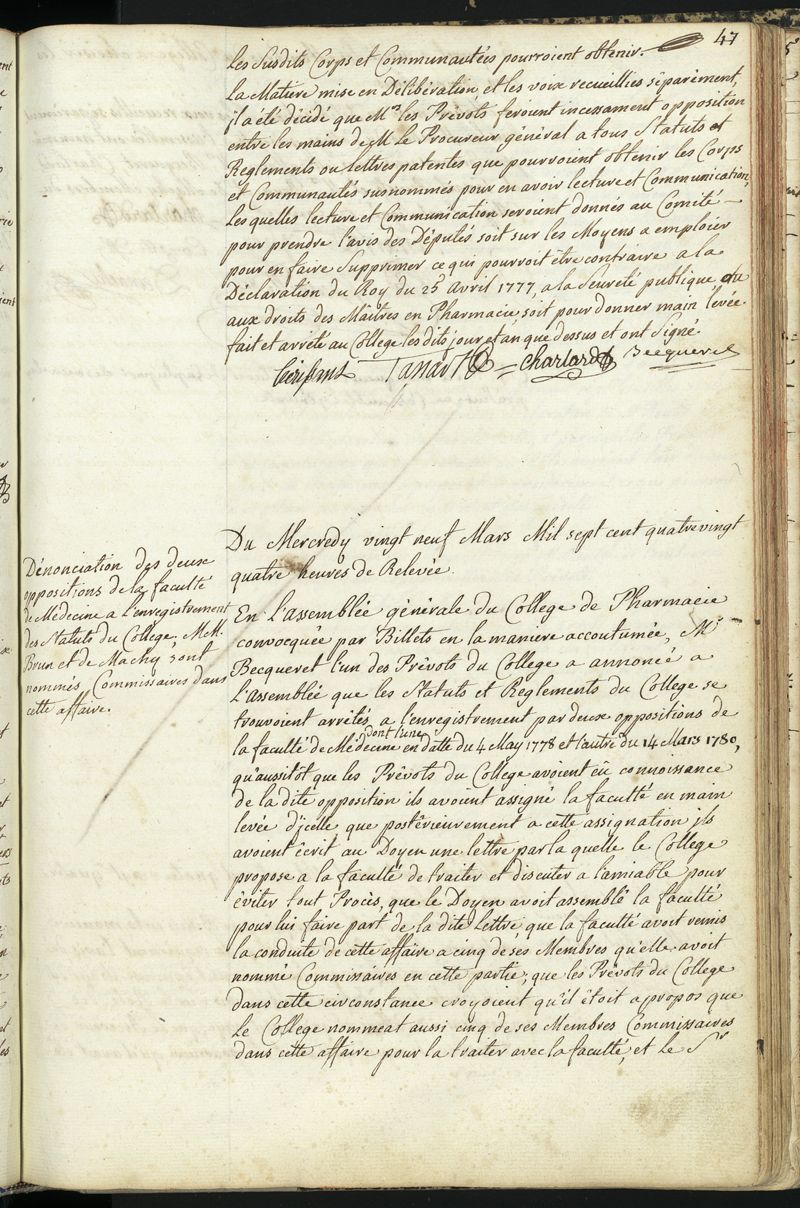 47
les Susdits Corps et Communautées pourroient obtenir.
La Matiere mise en Délibération, et les voix recueillies séparément,
il a été décidé que Mrs les Prévots feroient incessament opposition
entre les mains de M. le Procureur général a tous Statuts et
Reglements ou lettres patentes que pourroient obtenir les Corps
et Communautés susnommés pour en avoir lecture et Communication,
les quelles lecture et Communication seroient donnés au Comité
pour prendre l'avis des Députés soit sur les Moyens a emploier
pour en faire Supprimer ce qui pourroit être contraire a la
Déclaration du Roy du 25 Avril 1777 a la Seureté publique ou
aux droits des Maîtres en Pharmacie, soit pour donner main levée.
fait et arrêté au College les dits jour et an que dessus et ont Signé
Charlard Becqueret
Du Mercredy vingt neuf Mars Mil sept cent quatrevingt
quatre heures de Relevée.
Dénonciation des deux
oppositions de la faculté
de Médecine a L'enregistrement
des Statuts du College; MM.
Brun et de Machy sont
nommés Commissaires dans
cette affaire.
En L'assemblée générale du College de Pharmacie
convocquée par Billets en la maniere accoutumée, Mr
Becqueret l'un des Prévots du College a annoncé a
L'assemblée que les Statuts et Reglements du College se
trouvoient arrêtés a l'enregistrement par deux oppositions de
la faculté de Médecine dont l'une en datte du 4 May 1778 et l'autre du 14 Mars 1780,
qu'aussitôt que les Prévots du College avoient eû connoissance
de la dite opposition ils avoient assigné la faculté en main
levée d'icelle, que postérieurement a cette assignation ils
avoient écrit au Doyen une lettre par la quelle le College
propose a la faculté de traiter et discuter a l'amiable pour
éviter tout Procès, que le Doyen avoit assemblé la faculté
pour lui faire part de la dite Lettre, que la faculté avoit remis
la conduite de cette affaire a cinq de ses Membres qu'elle avoit
nommé Commissaires en cette partie; que les Prévots du College
dans cette circonstance croyoient qu'il étoit apropos que
le College nommeat aussi cinq de ses Membres Commissaires
dans cette affaire pour la traiter avec la faculté, et le Sr